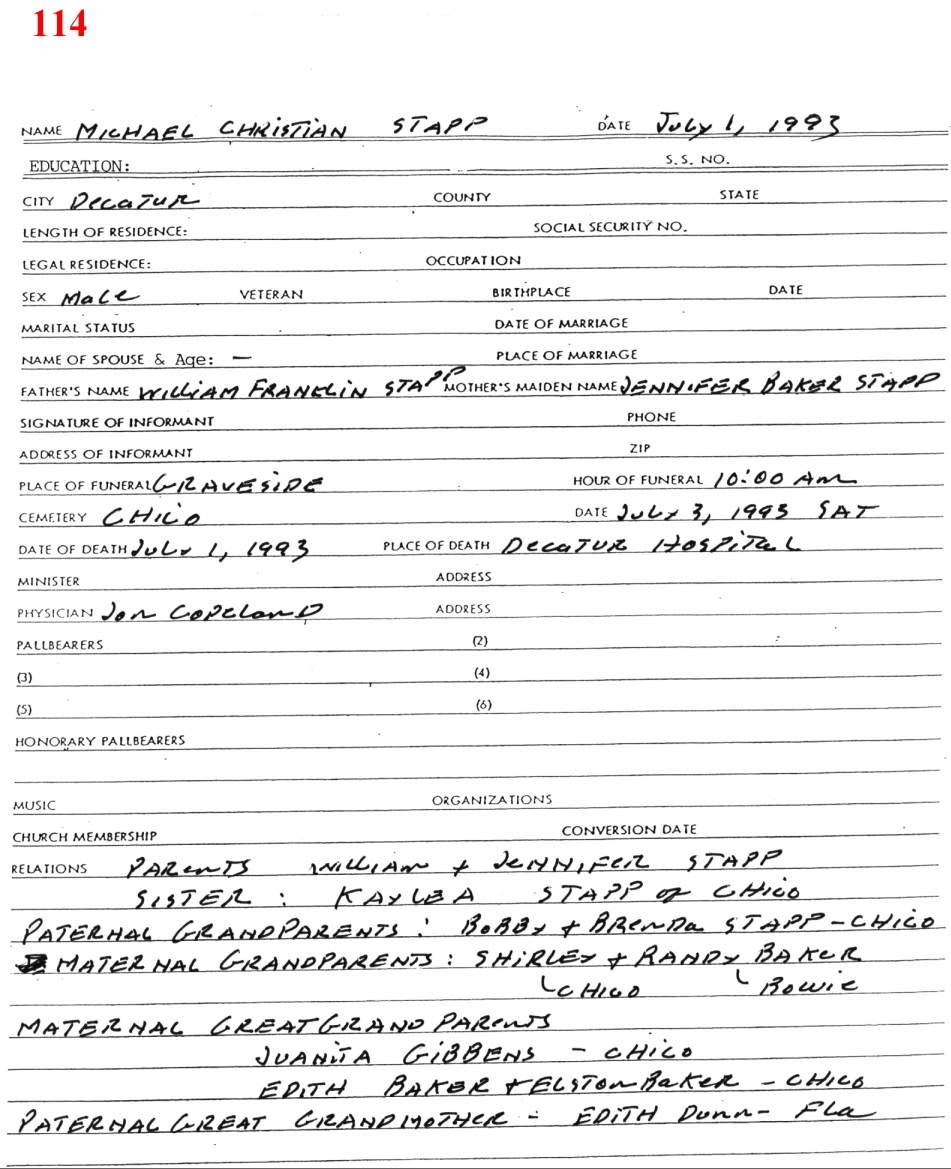 114
NAME MICHAEL CHRISTIAN STAPP DATE July 1, 1993
EDUCATION: S.S. NO.
CITY Decatur COUNTY STATE
LENGTH OF RESIDENCE: SOCIAL SECURITY NO.
LEGAL RESIDENCE: OCCUPATION
SEX Male VETERAN BIRTHPLACE DATE
MARITAL STATUS DATE OF MARRIAGE
NAME OF SPOUSE & Age: — PLACE OF MARRIAGE
FATHER'S NAME WILLIAM FRANKLIN STAPP MOTHER'S MAIDEN NAME JENNIFER BAKER STAPP
SIGNATURE OF INFORMANT PHONE
ADDRESS OF INFORMANT ZIP
PLACE OF FUNERAL GRAVESIDE HOUR OF FUNERAL 10:00 Am
CEMETERY CHICO DATE July 3, 1993 SAT
DATE OF DEATH July 1, 1993 PLACE OF DEATH Decatur Hospital
MINISTER ADDRESS
PHYSICIAN Jon Copeland ADDRESS
PALLBEARERS (2)
(3) (4)
(5) (6)
HONORARY PALLBEARERS
MUSIC ORGANIZATIONS
CHURCH MEMBERSHIP CONVERSION DATE
RELATIONS PARENTS WILLIAM + JENNIFER STAPP
SISTER : KAYLEA STAPP of CHICO
PATERNAL GRANDPARENTS : BOBBY + BRENDA STAPP - CHICO
MATERNAL GRANDPARENTS : SHIRLEY + RANDY BAKER
CHICO Bowie
MATERNAL GREAT GRAND PARENTS
JUANITA GIBBENS - CHICO
EDITH BAKER + ELSTON BAKER - CHICO
PATERNAL GREAT GRANDMOTHER - EDITH Dunn - Fla